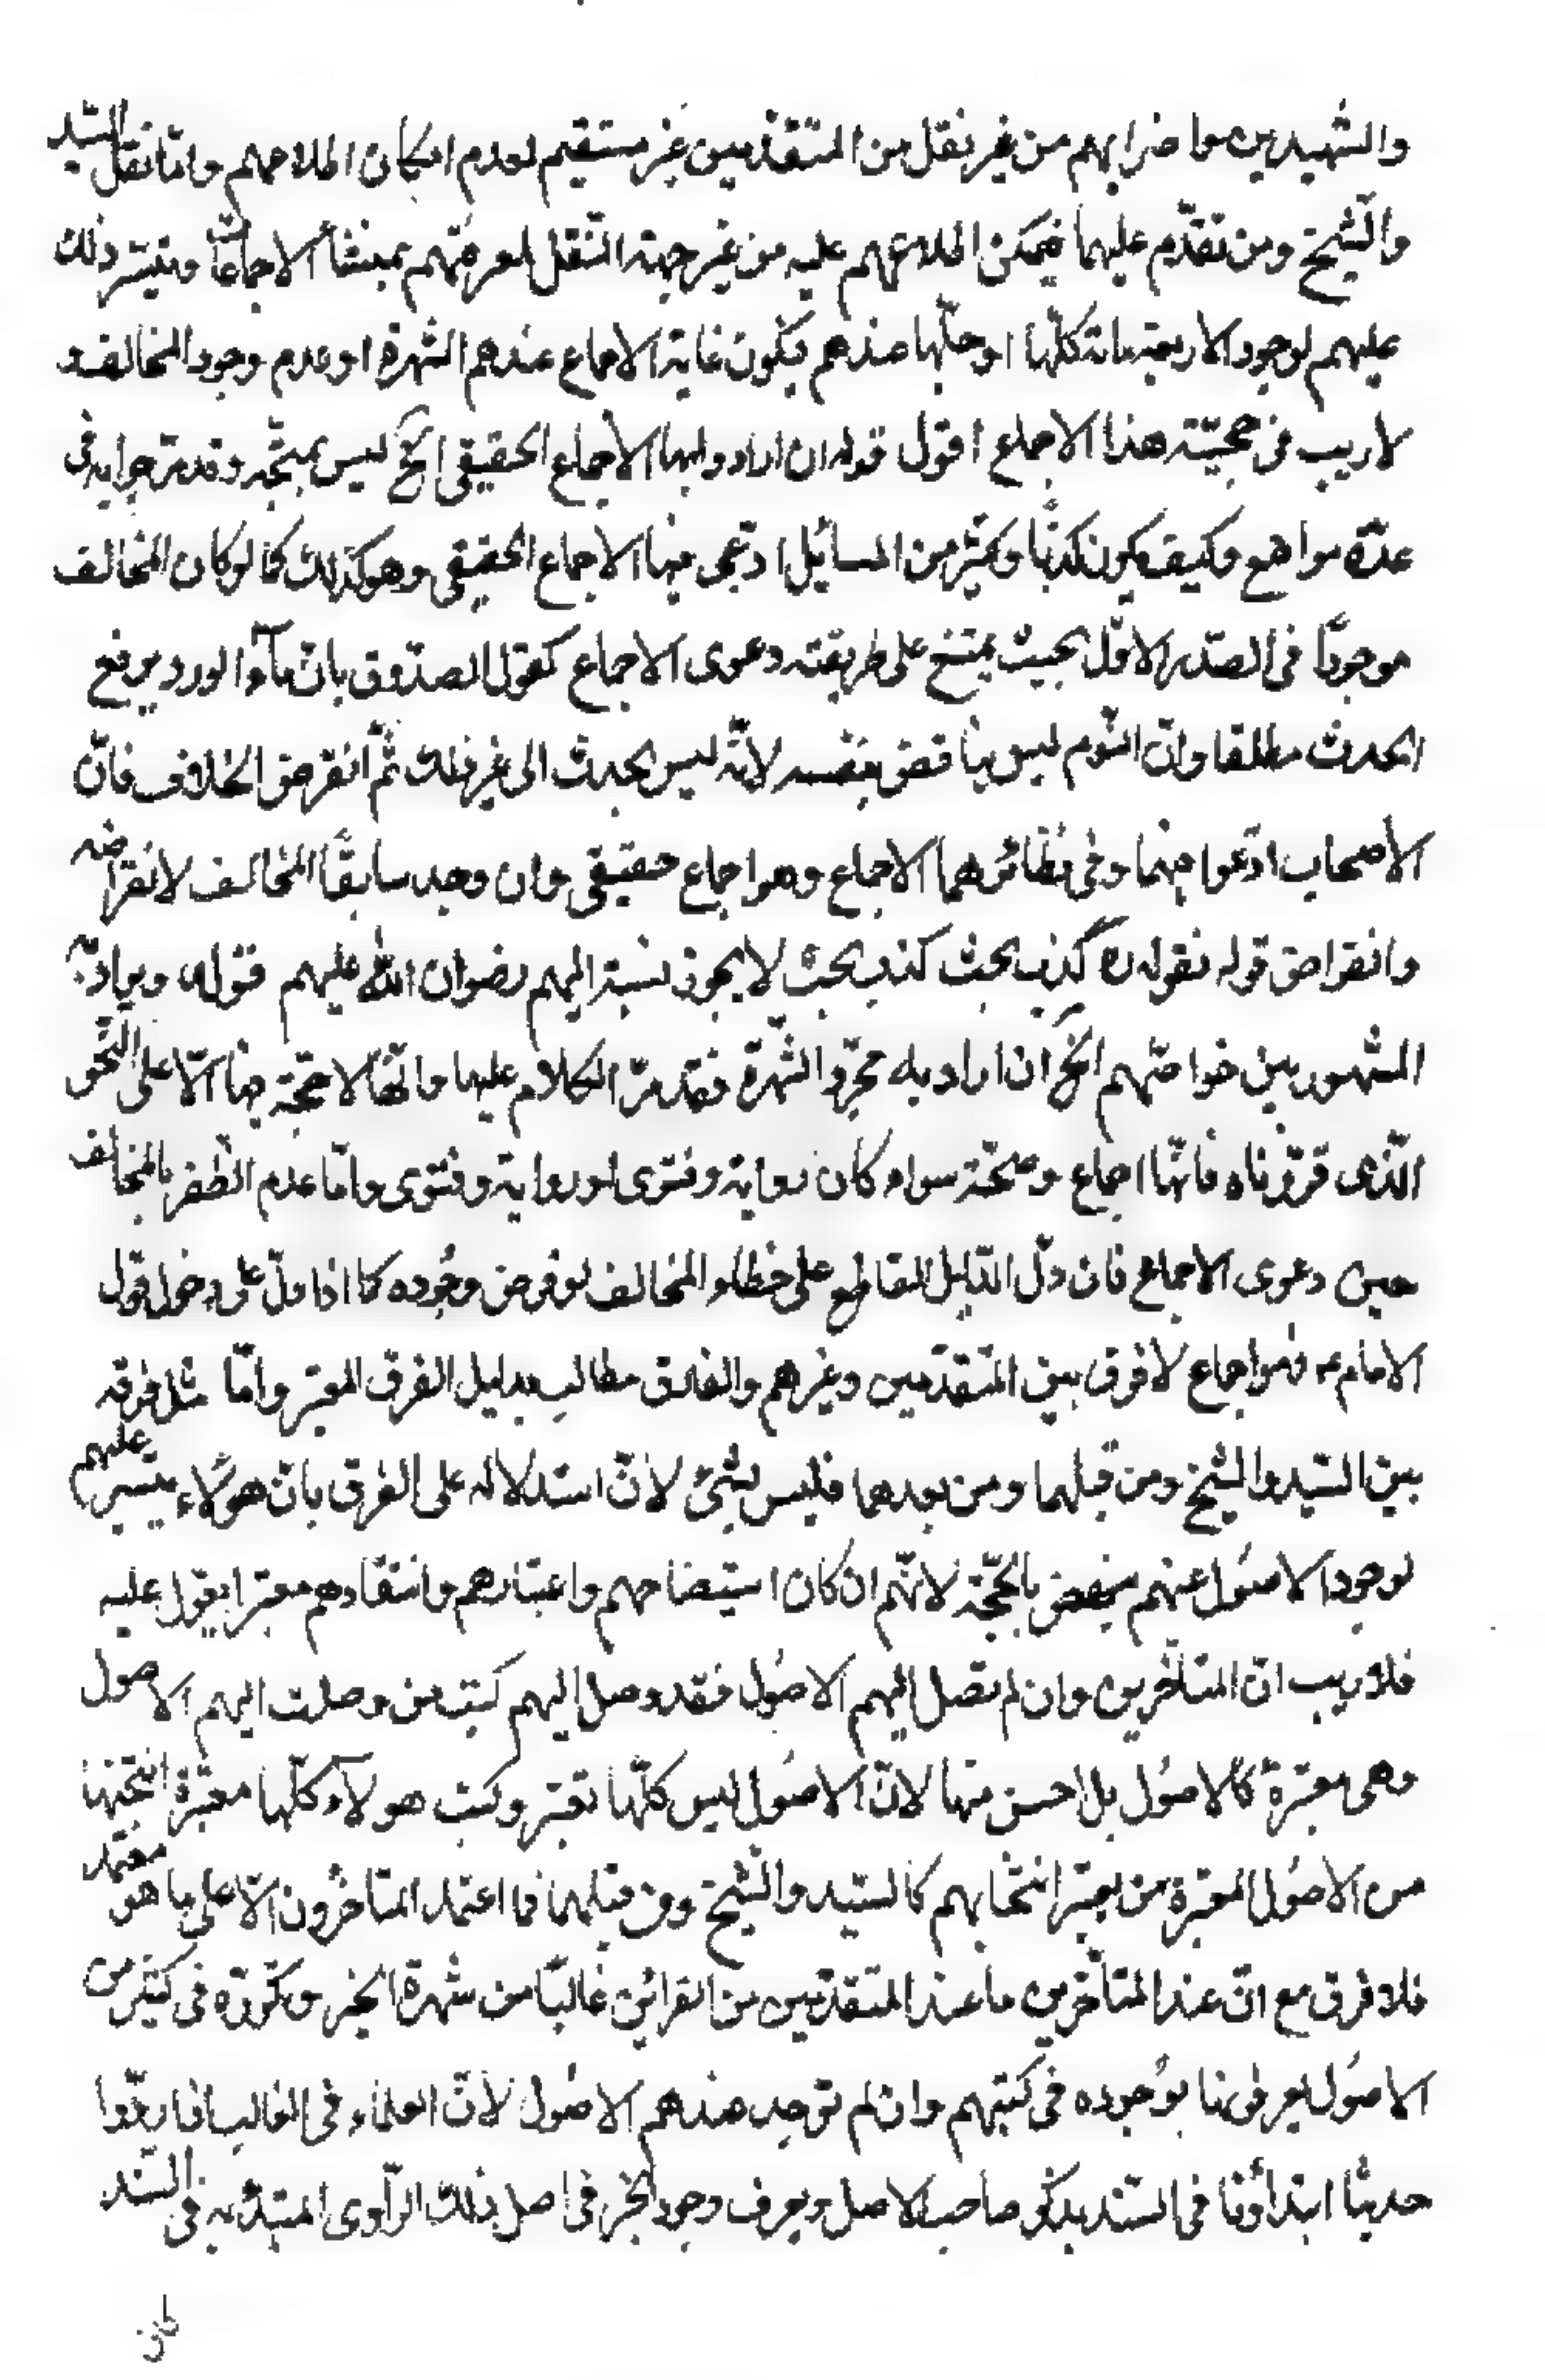 والشهيدين واضرابهم من غير نقل من المتقدّمين غير مستقيم لعدم امكان اطلاعهم وامّا نقل السّيد
والشّيخ ومن تقدّم عليهما فيمكن اطلاعهم عليه من غير جهة النّقل لمعرفتهم بمنشأ الاجماعات وتيسّر ذلك
عليهم لوجود الاربعمائة كلّها او جلّها عندهم فيكون غاية الاجماع عندهم الشهرة او عدم وجود المخالف و
لا ريب فى حجيّة هذا الاجماع اقول قوله ان ارادوا بها الاجماع الحقيقى الخ ليس بمتّجه وقد مرّ جوابه فى
عدّة مواضع وكيف يكون كذبًا وكثير من المسائيل ادّعى فيها الاجماع الحقيقى وهو كذلك كما لو كان المخالف
موجودًا فى الصّدر الاوّل بحيث يمتنع على طريقته دعوى الاجماع كقول الصدّوق بانّ مآء الورد يرفع
الحدث مطلقا وانّ النّوم ليس بناقض بنفسه لانّه ليس بحدث الى غير ذلك ثمّ انقرض الخلاف فانّ
الاصحاب ادّعوا فيهما وفى نظائرهما الاجماع وهو اجماع حقيقى وان وجد سابقًا المخالف لانقراضه
وانقراض قوله فقوله ره كذب بحث كذب بحت لا يجوز نسبته اليهم رضوان الله عليهم قوله ويراد به
المشهور بين خواصّهم الخ ان اراد به مجرّد الشّهرة فقد مرّ الكلام عليها وانّها لا حجّة فيها الّا على النّحو
الّذى قرّرناه فانّها اجماع وحجّة سواء كان رواية وفتوى او رواية وفتوى وامّا عدم الظّفر بالمخالف
حين دعوى الاجماع فان دلّ الدّليل القاطع على خطاء المخالف لو فرض وجُوده كما اذا دلّ على دخول قول
الامام ع فهو اجماع لا فرق بين المتقدّمين وغيرهم والفارق مطالب بدليل الفرق المعتبر وامّا مثل فرقه
بين السّيد والشّيخ ومن قبلهما ومن بعدهما فليس بشئ لانّ استدلاله على الفرق بانّ هؤلاء يتيسر عليهم
لوجود الاصُول عندهم بالحُجّة لانّهم ان كان استيضاحهم واعتبارهم وانتقادهم معتبرا يعوّل عليه
فلا ريب انّ المتأخّرين وان لم تصل اليهم الاصُول فقد وصل اليهم كتب من وصلت اليهم الاصول
وهى معتبرة كالاصُول بل احسن منها لانّ الاصُول ليس كلّها تعتبر وكتب هولآء كلّها معتبرة انتخبها
من الاصُول المعتبرة من يعتبر انتخابهم كالسّيد والشّيخ ومن قبلهما فما اعتمد المتأخّرون الّا على ما هو معتمد
فلا فرق مع انّ عند المتأخّرين ما عند المتقدّمين من القرائن غالبًا من شهرة الخبر وتكرّره فى كثير من
الاصُول يعرفونها بوُجوده فى كتبهم وان لم توجد عندهم الاصُول لانّ العلماء فى الغالب اذا رووا
حديثا ابتدأوا فى السّند بذكر صاحب الاصل ويعرف وجود الخبر فى اصل ذلك الرّاوى المبتدء به فى السّند